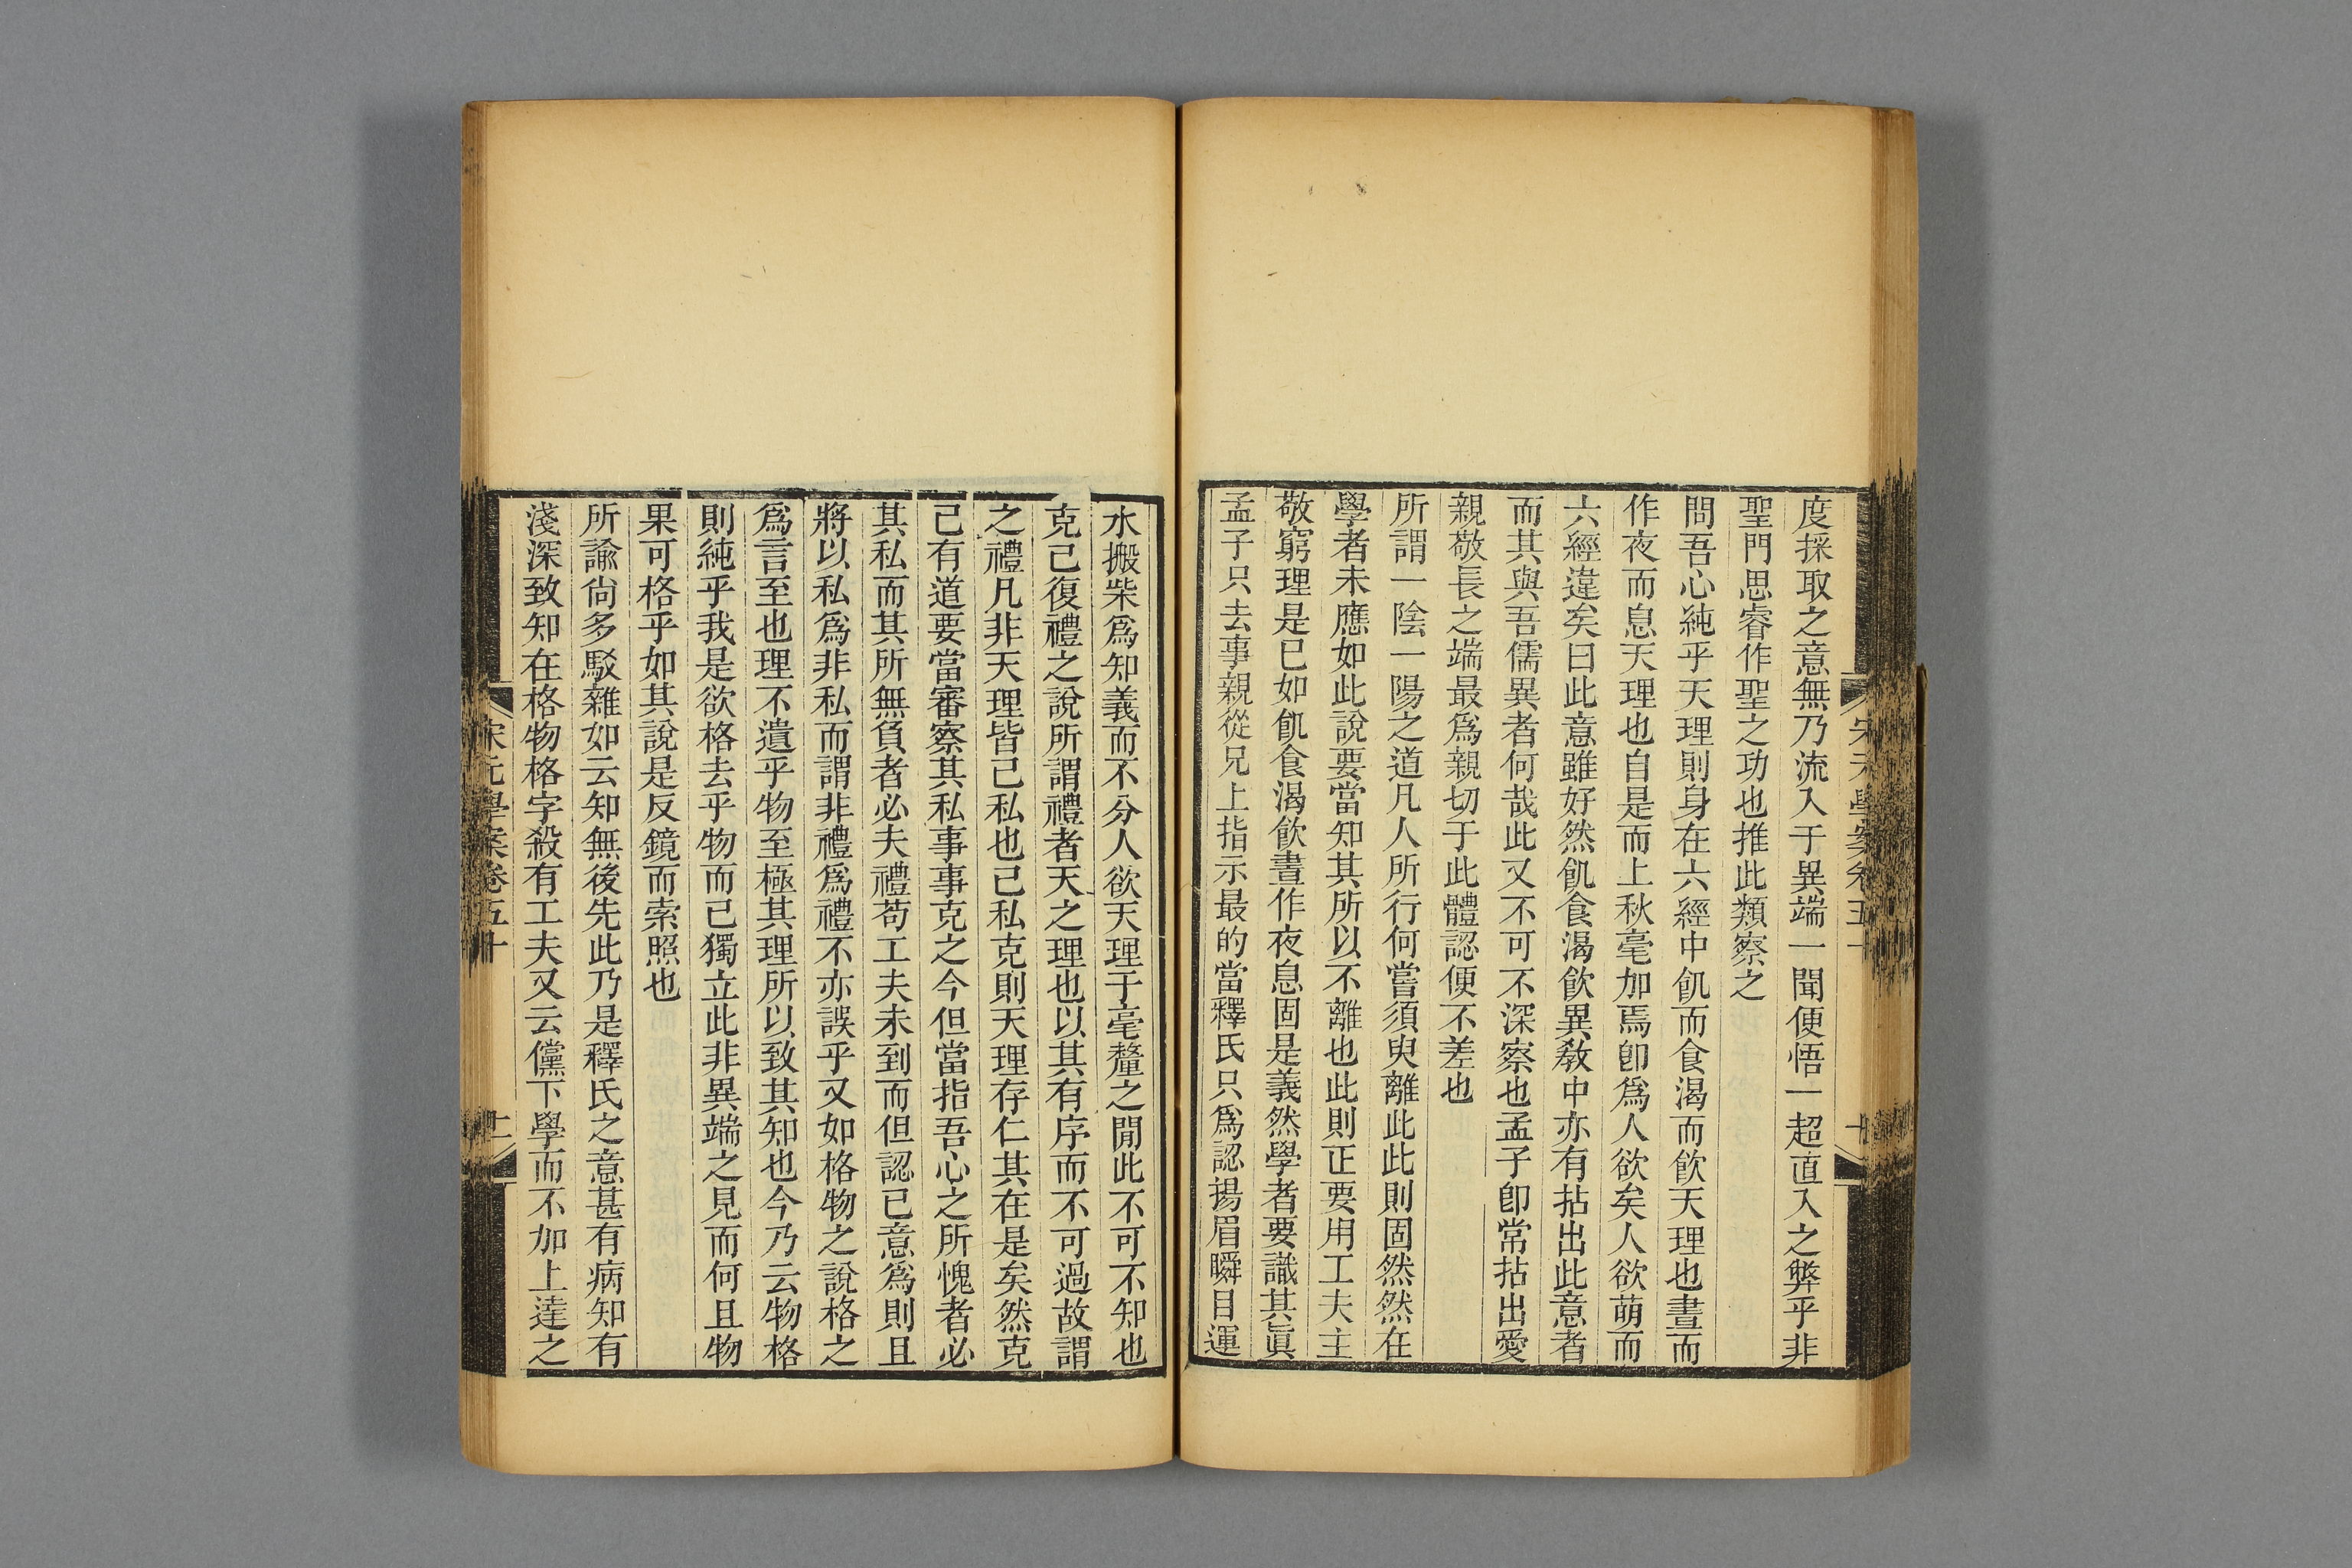 度採取之意無乃流入于異端一聞便悟一超直入之弊乎非
聖門思睿作聖之功也推此類察之
問吾心純乎天理則身在六經中飢而食渴而飲天理也晝而
作夜而息天理也自是而上秋毫加焉卽爲人欲矣人欲萌而
六經違矣曰此意雖好然飢食渴飲異敎中亦有拈出此意者
而其與吾儒異者何哉此又不可不深察也孟子卽常拈出愛
親敬長之端最爲親切于此體認便不差也
所謂一陰一陽之道凡人所行何嘗須臾離此此則固然然在
學者未應如此說要當知其所以不離也此則正要用工夫主
敬窮理是已如飢食渴飲晝作夜息固是義然學者要識其眞
孟子只去事親從兄上指示最的當釋氏只爲認揚眉瞬目運
水搬柴爲知義而不分人欲天理于毫釐之閒此不可不知也
克己復禮之說所謂禮者天之理也以其有序而不可過故謂
之禮凡非天理皆己私也己私克則天理存仁其在是矣然克
己有道要當審察其私事事克之今但當指吾心之所愧者必
其私而其所無負者必夫禮苟工夫未到而但認已意爲則且
將以私爲非私而謂非禮爲禮不亦誤乎又如格物之說格之
爲言至也理不遺乎物至極其理所以致其知也今乃云物格
則純乎我是欲格去乎物而已獨立此非異端之見而何且物
果可格乎如其說是反鏡而索照也
所諭尙多駁雜如云知無後先此乃是釋氏之意甚有病知有
淺深致知在格物格字殺有工夫又云儻下學而不加上達之
宋元學案卷五十